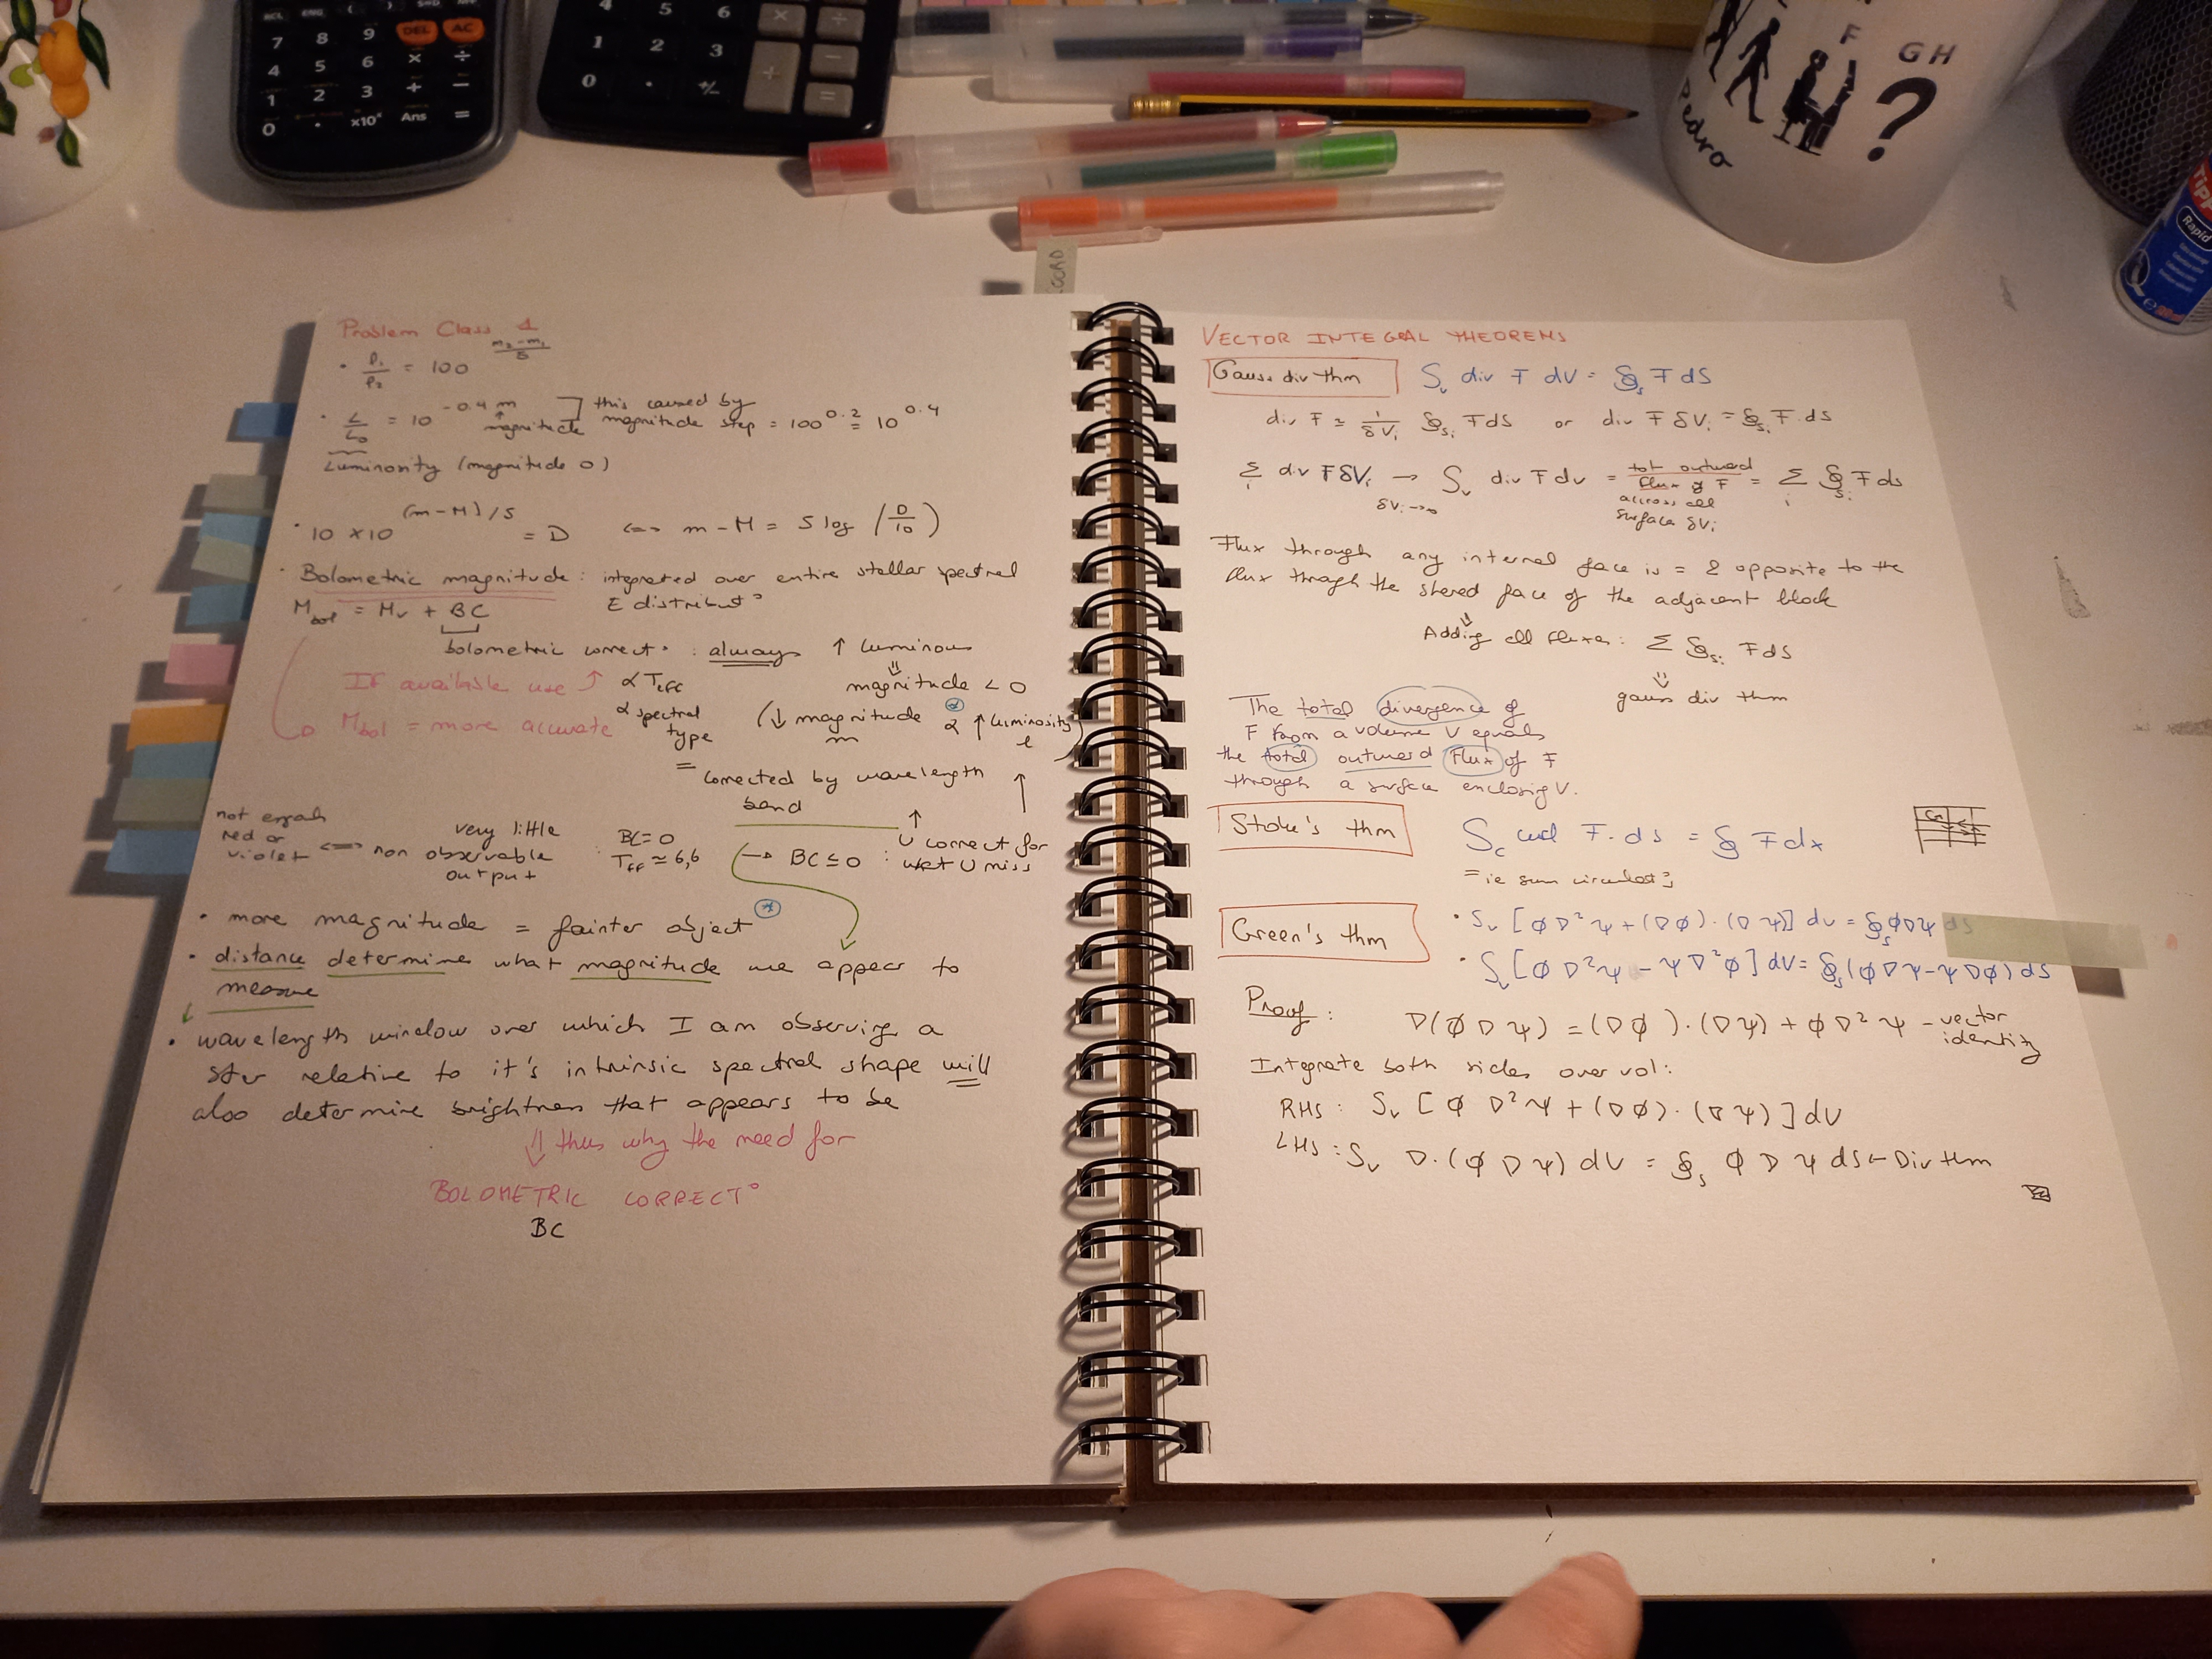 Problem Class 1
• P₁/P₂ = 100^((m₂-m₁)/5)
• L/L₀ = 10^(-0.4m) ] this caused by
magnitude magnitude step = 100^0.2 = 10^0.4
Luminosity (magnitude 0)
• 10 × 10^((m-M)/5) = D ⇔ m-M = 5 log (D/10)
• Bolometric magnitude: integrated over entire stellar spectral
E distribut°
M_bol = Mv + BC
bolometric correct° : always ↑ luminous
If available use ↑ α Teff
magnitude < 0
M_bol = more accurate α spectral type (↓ magnitude α ↑ luminosity)
m
= corrected by wavelength ↑
band
not enough
red or
violet ⇔ non observable
very little
output
: BC=0
Teff ≈ 6,6
→ BC ≤ 0 : what U miss
U correct for
• more magnitude = fainter object *
• distance determine what magnitude we appear to
measure
• wavelength window over which I am observing a
star relative to it's intrinsic spectral shape will
also determine brightness that appears to be
⇓ thus why the need for
BOLOMETRIC CORRECT°
BC
VECTOR INTEGRAL THEOREMS
Gauss div thm ∫ᵥ div F dV = ∮ₛ F dS
div F = 1/δVᵢ ∮ₛᵢ F dS or div F δVᵢ = ∮ₛᵢ F·dS
Σᵢ div F δVᵢ → ∫ᵥ div F dV = tot outward flux of F accross all surface δVᵢ = Σᵢ ∮ₛᵢ F dS
δVᵢ→0
Flux through any internal face is = & opposite to the
flux through the shared face of the adjacent block
⇓
Adding all fluxes: Σ ∮ₛᵢ F dS
⇓
gauss div thm
The total divergence of
F from a volume V equals
the total outward Flux of F
through a surface enclosing V.
Stoke's thm ∫c curl F · ds = ∮ F dx
= ie sum circulat°s
Green's thm • ∫ᵥ [φ∇²ψ + (∇φ)·(∇ψ)] dV = ∮ₛ φ∇ψ dS
• ∫ᵥ [φ∇²ψ - ψ∇²φ] dV = ∮ₛ (φ∇ψ - ψ∇φ) dS
Proof: ∇(φ∇ψ) = (∇φ)·(∇ψ) + φ∇²ψ - vector
identity
Integrate both sides over vol:
RHS: ∫ᵥ [φ∇²ψ + (∇φ)·(∇ψ)] dV
LHS: ∫ᵥ ∇·(φ∇ψ) dV = ∮ₛ φ∇ψ dS ← Div thm
COORD
Pedro
F GH
H?
Tipp
Rapid
7 8 9 DEL AC
4 5 6 × ÷
1 2 3 + −
0 • ×10ˣ Ans =
4 5 6 × ÷
1 2 3 + −
0 • % =